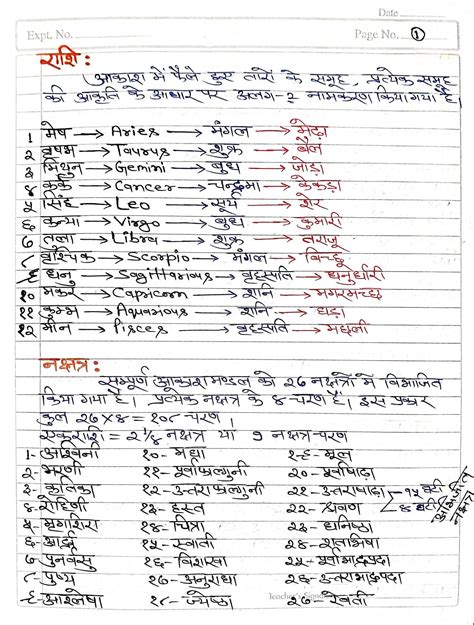 Date
Expt. No.
Page No. ①
राशि:
आकाश में फैले हुए तारों के समूह, प्रत्येक समूह
की आकृति के आधार पर अलग-२ नामकरण किया गया है।
१ मेष → Aries → मंगल → मेढ़ा
२ वृषभ → Taurus → शुक्र → बैल
३ मिथुन → Gemini → बुध → जोड़ा
४ कर्क → Cancer → चन्द्रमा → केकड़ा
५ सिंह → Leo → सूर्य → शेर
६ कन्या → Virgo → बुध → कुमारी
७ तुला → Libra → शुक्र → तराजू
८ वृश्चिक → Scorpio → मंगल → बिच्छू
९ धनु → Sagittarius → बृहस्पति → धनुर्धारी
१० मकर → Capricorn → शनि → मगरमच्छ
११ कुम्भ → Aquarious → शनि → घड़ा
१२ मीन → Pisces → बृहस्पति → मछली
नक्षत्र:
सम्पूर्ण आकाशमण्डल को २७ नक्षत्रों में विभाजित
किया गया है। प्रत्येक नक्षत्र के ४ चरण हैं। इस प्रकार
कुल २७×४=१०८ चरण।
एकराशि = 2 1/4 नक्षत्र या 9 नक्षत्र-चरण
१- अश्विनी १०- मघा १९- मूल
२- भरणी ११- पूर्वाफाल्गुनी २०- पूर्वाषाढ़ा
३- कृतिका १२- उत्तराफाल्गुनी २१- उत्तराषाढ़ा १५ घटी
४- रोहिणी १३- हस्त २२- श्रवण ४ घटी अभिजीत नक्षत्र
५- मृगशिरा १४- चित्रा २३- धनिष्ठा
६- आर्द्रा १५- स्वाती २४- शतभिषा
७- पुनर्वसु १६- विशाखा २५- पूर्वाभाद्रपदा
८- पुष्य १७- अनुराधा २६- उत्तराभाद्रपदा
९- आश्लेषा १८- ज्येष्ठा २७- रेवती